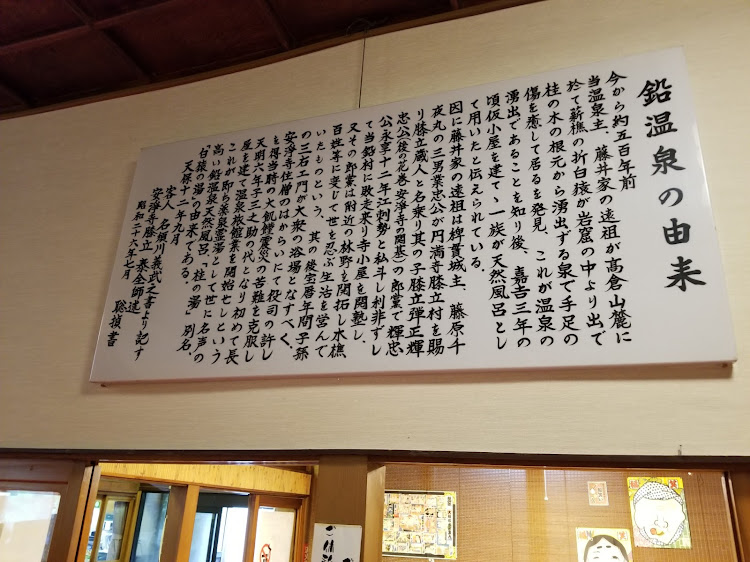 鉛温泉の由来
今から約五百年前
当温泉主、藤井家の遠祖が高倉山麓に
於て薪樵の折白猿が岩窟の中より出で
桂の木の根元から湧出ずる泉で手足の
傷を癒して居るを発見、これが温泉の
湧出であることを知り後、嘉吉三年の
頃仮小屋を建て、一族が天然風呂とし
て用いたと伝えられている。
因に藤井家の遠祖は稗貫城主、藤原千
夜丸の三男業忠公が円満寺膝立村を賜
り膝立蔵人と名乗り其の子膝立弾正輝
忠公(後の花巻安浄寺の開基)の郎党で輝忠
公永享十二年江刺勢と私斗し利非ずし
て当鉛村に敗走来り寺小屋を開塾し、
又その郎党は附近の林野を開拓し木樵、
百姓等に変じて世を忍ぶ生活を営んで
いたものという。其の後宝暦年間子孫
の三右エ門が大衆の浴場となすべく、
安浄寺住僧のはからいにて役司の許し
を得当時の大飢饉震災の苦難を克服し
天明六年子三之助の代となり初めて長
屋を建て温泉旅館業を開始せしという
これが即ち薬泉霊湯として世に名声の
高い鉛温泉天然風呂、「桂の湯」別名、
「白猿の湯」の由来である。
天保十二年九月
客人 名須川義武之書より記す
安浄寺膝立 泰全師述
昭和二十六年七月 聡禎書